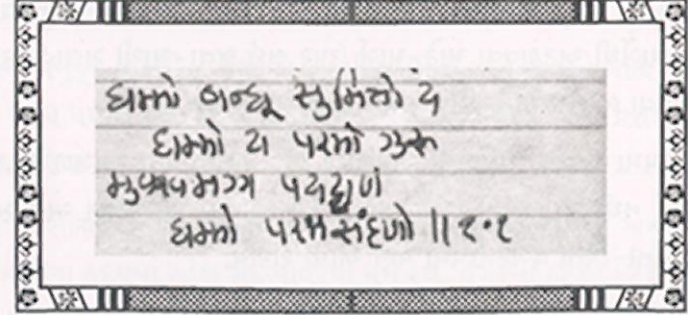 ધમ્મો બન્ધૂ સુમિત્તો ય
ધમ્મો ય પરમો ગુરૂ
મુક્ખમગ્ગ પયટ્ટાણં
ધમ્મો પરમસંદણો ||